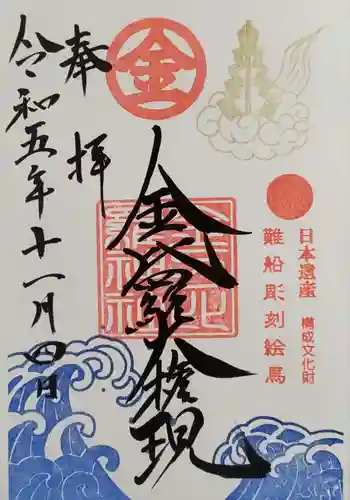 日本遺産 構成文化財
難船彫刻絵馬
金
金比羅大権現
奉拝
令和五年十一月四日